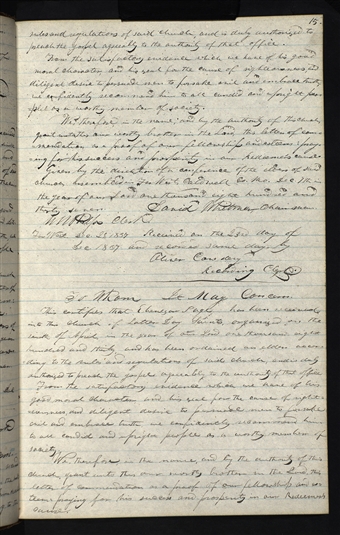 15.
rules and regulations of said church, and is duly authorized to
preach the gospel agreeably to the authority of that office.
From the satisfactory evidence which we have of his good
moral character and his zeal for the cause of righteousness and
diligent desire to persuade men to forsake evil and embrace truth,
we confidently recommend him to all candid and upright peo-
ple as a worthy member of society.
We therefore in the name, and by the authority of this church
grant unto this our worthy brother in the Lord, this letter of com-
mendation as a proof of our fellowship and esteem: pray-
ing for his success and prosperity in our redeemers cause.
Given by the direction of a conference of the elders of said
church assembled in Far West, Caldwell Co. Mo.
the year of our Lord one thousand eight hundred and
thirty seven. David Whitmer Chairman
W. W. Phelps Clerk
Far West Dec. 23 1837 Received on the 23rd day of
Dec 1837 and recorded same day by
Oliver Cowdery
Recording Clerk
To Whom It May Concern
This certifies that Ebenezer Page has been received
into this Church of Latter Day Saints, organized on the
sixth of April in the year of our Lord one thousand eight
hundred and thirty and has been ordained an elder accor-
ding to the rules and regulations of said church, and is duly
authorized to preach the gospel agreeably to the authority of that office.
From the satisfactory evidence which we have of his
good moral character, and his zeal for the cause of right-
eousness, and diligent desire to persuade men to forsake
evil and embrace truth, we confidently recommend him
to all candid and upright people as a worthy member of
society.
We therefore in the name, and by the authority of this
church, grant unto this our worthy brother in the Lord, this
letter of commendation as a proof of our fellowship and es-
teem: praying for his success and prosperity in our Redeemer's
cause.